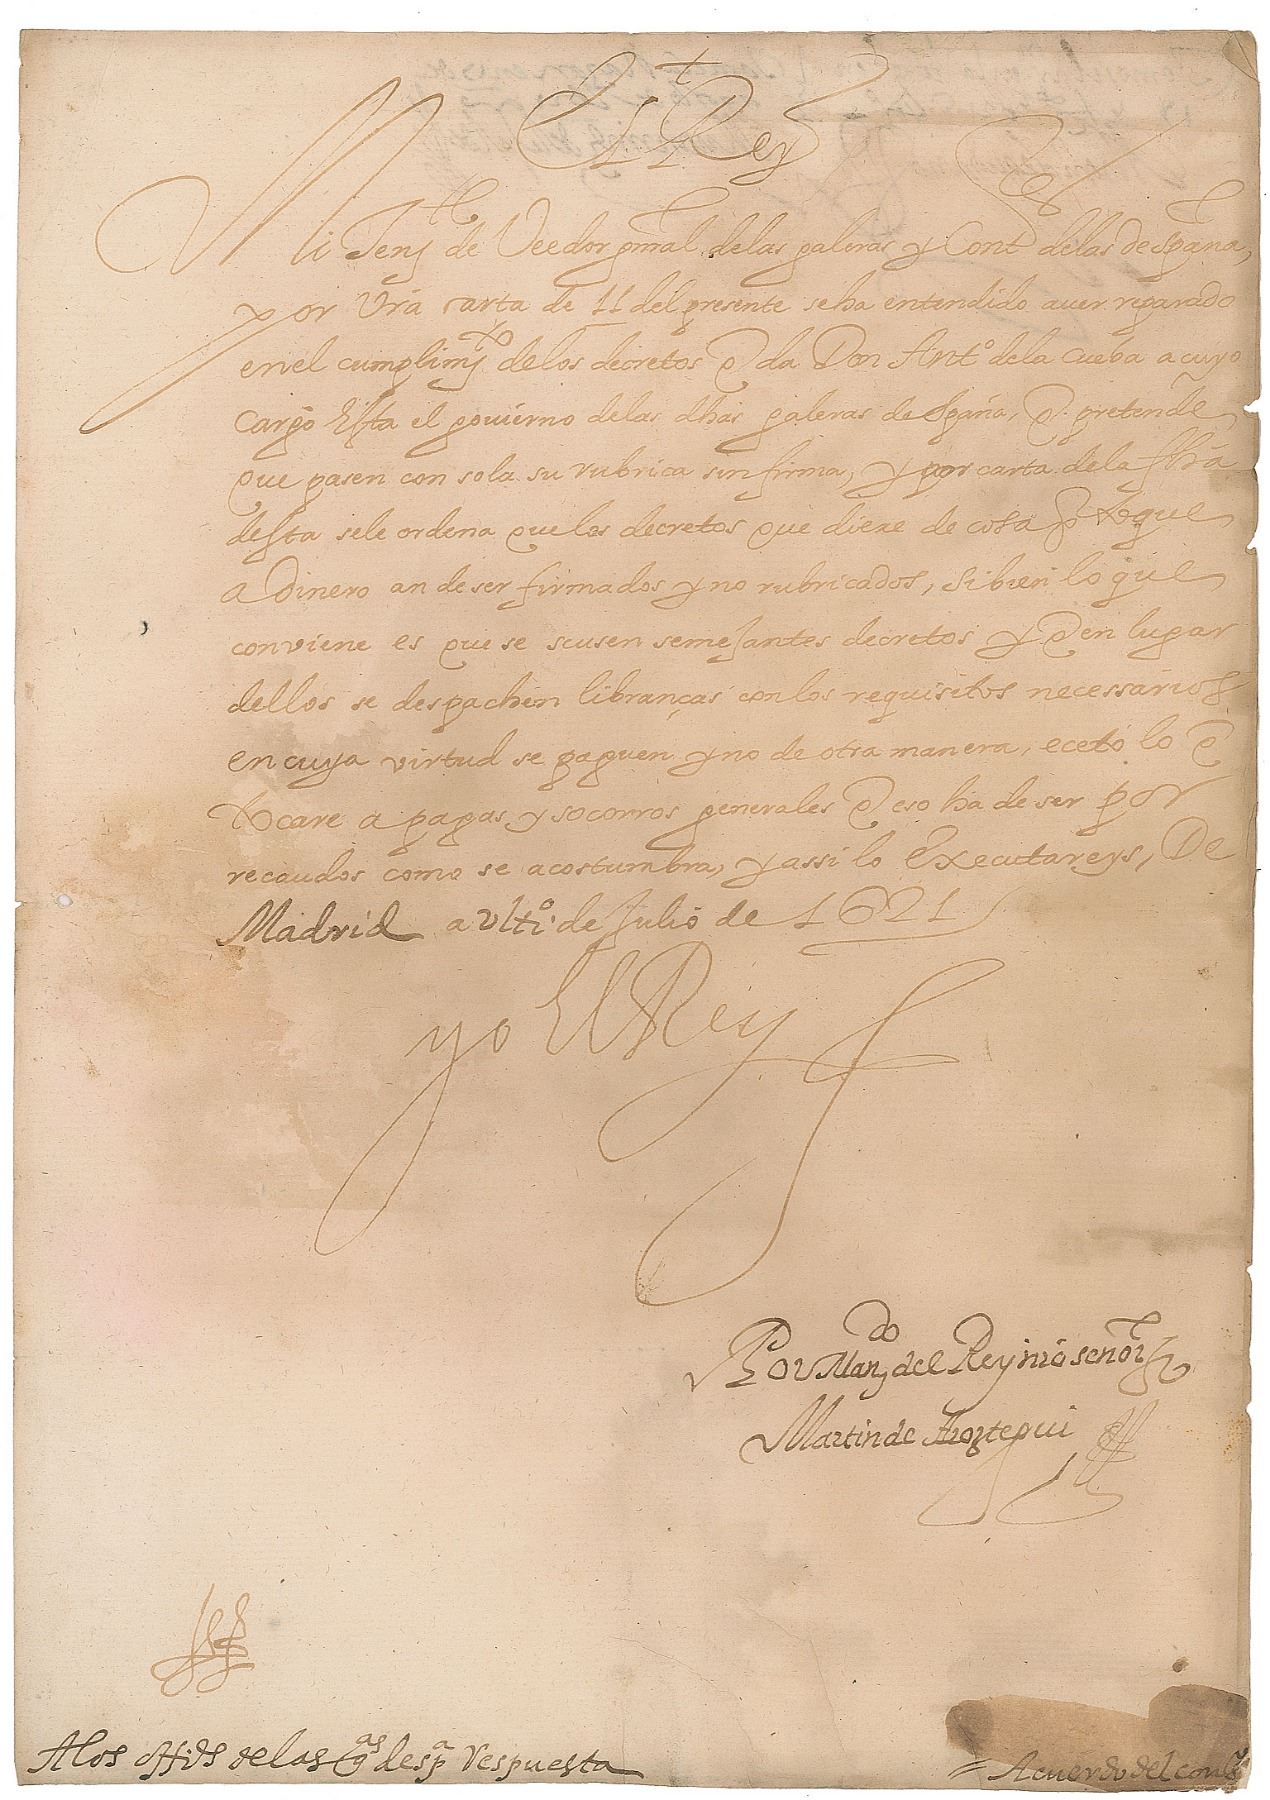 El Rey
Mi Tenj.te de Veedor gnral de las galeras y Cont.or de las despaña,
por vrã carta de 11 del presente se ha entendido auer reparado
en el cumplimj.to de los decretos q̃ da Don Ant.o de la Cueba a cuyo
cargo Esta el gouierno de las dhas galeras de españa, q̃ pretende
que pasen con sola su rubrica sin firma, y por carta de la fhã
desta se le ordena que los decretos que diere de cosa q̃ toque
a dinero an de ser firmados y no rubricados, si bien lo que
conviene es que se scusen semejantes decretos y q̃ en lugar
dellos se despachen libranças con los requisitos necessarios
en cuya virtud se paguen y no de otra manera, eceto lo q̃
tocare a pagas y socorros generales q̃ eso ha de ser por
recaudos como se acostumbra, y assi lo Executareys, De
Madrid a ulti.o de Julio de 1621
yo El Rey
Por Man.do del Rey nrõ señor
Martin de Aroztegui
A los offi.os de las g.as de esp.a Respuesta
Acuerdo del cons.o